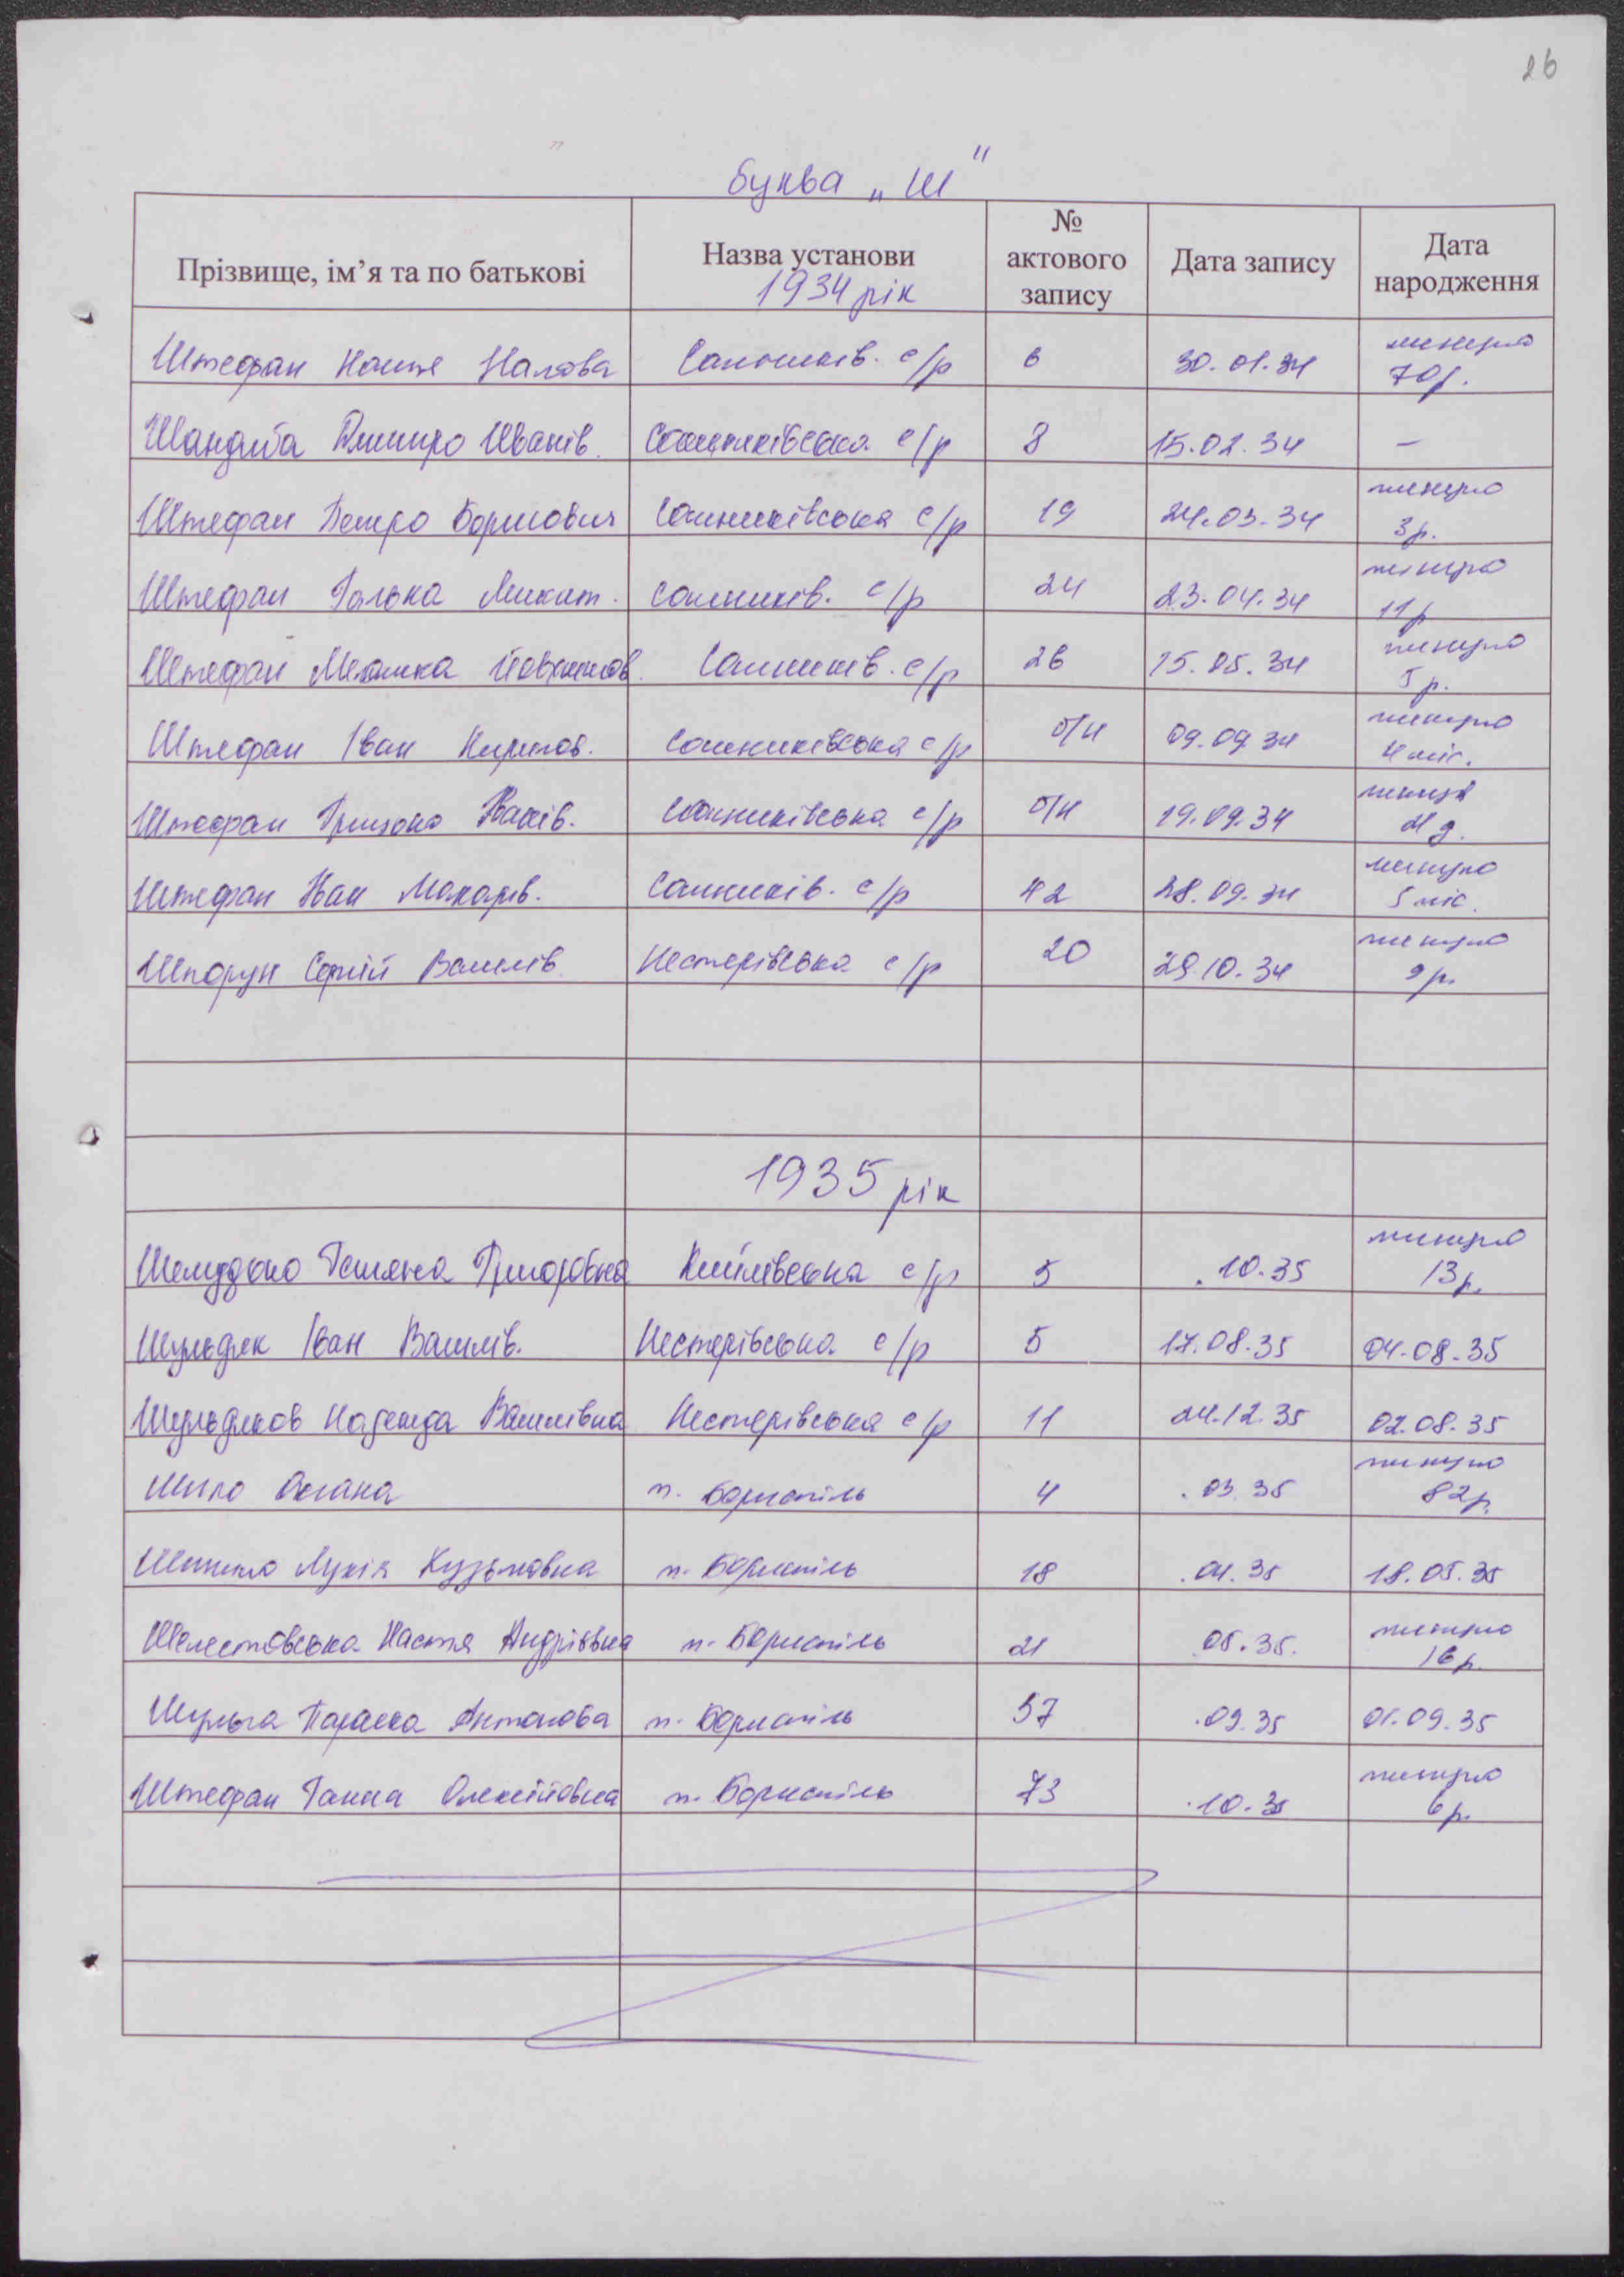 26
буква „Ш"
Прізвище, ім'я та по батькові Назва установи 1934 рік № актового запису Дата запису Дата народження
Штефан Настя Сошників. с/р 6 30.01.34 минуло 70р.
Шандиба Дмитро Иванів. Сошниківська с/р 8 15.02.34 –
Штефан Петро Борисович Сошниківська с/р 19 24.03.34 минуло 3р.
Штефан Галька Микит. Сошників. с/р 24 23.04.34 минуло 11р
Штефан Сошників. с/р 26 15.05.34 минуло 5 р.
Штефан Іван Кирилов. Сошниківська с/р б/н 09.09.34 минуло 4 міс.
Штефан Грицько Іванів. Сошниківська с/р б/н 19.09.34 минуло д.
Штефан Іван Макарів. Сошників. с/р 42 28.09.34 минуло 5 міс.
Шпорун Сергій Василів. Нестерівська с/р 20 29.10.34 минуло 9 р.
1935 рік
Тетяна Григорівна Кийлівська с/р 5 .10.35 минуло 13р.
Шульдяк Іван Василів. Нестерівська с/р 5 17.08.35 04.08.35
Шульдяков Надежда Василівна Нестерівська с/р 11 24.12.35 02.08.35
Шило Оксана м. Бориспіль 4 .03.35 минуло 82р.
Лукія Кузьмовна м. Бориспіль 18 .04.35 18.05.35
Шелестовська Настя Андріївна м. Бориспіль 21 .05.35. минуло 16 р.
Шульга Параска Антонова м. Бориспіль 57 .09.35 01.09.35
Штефан Ганна Олексіївна м. Бориспіль 73 .10.35 минуло 6 р.